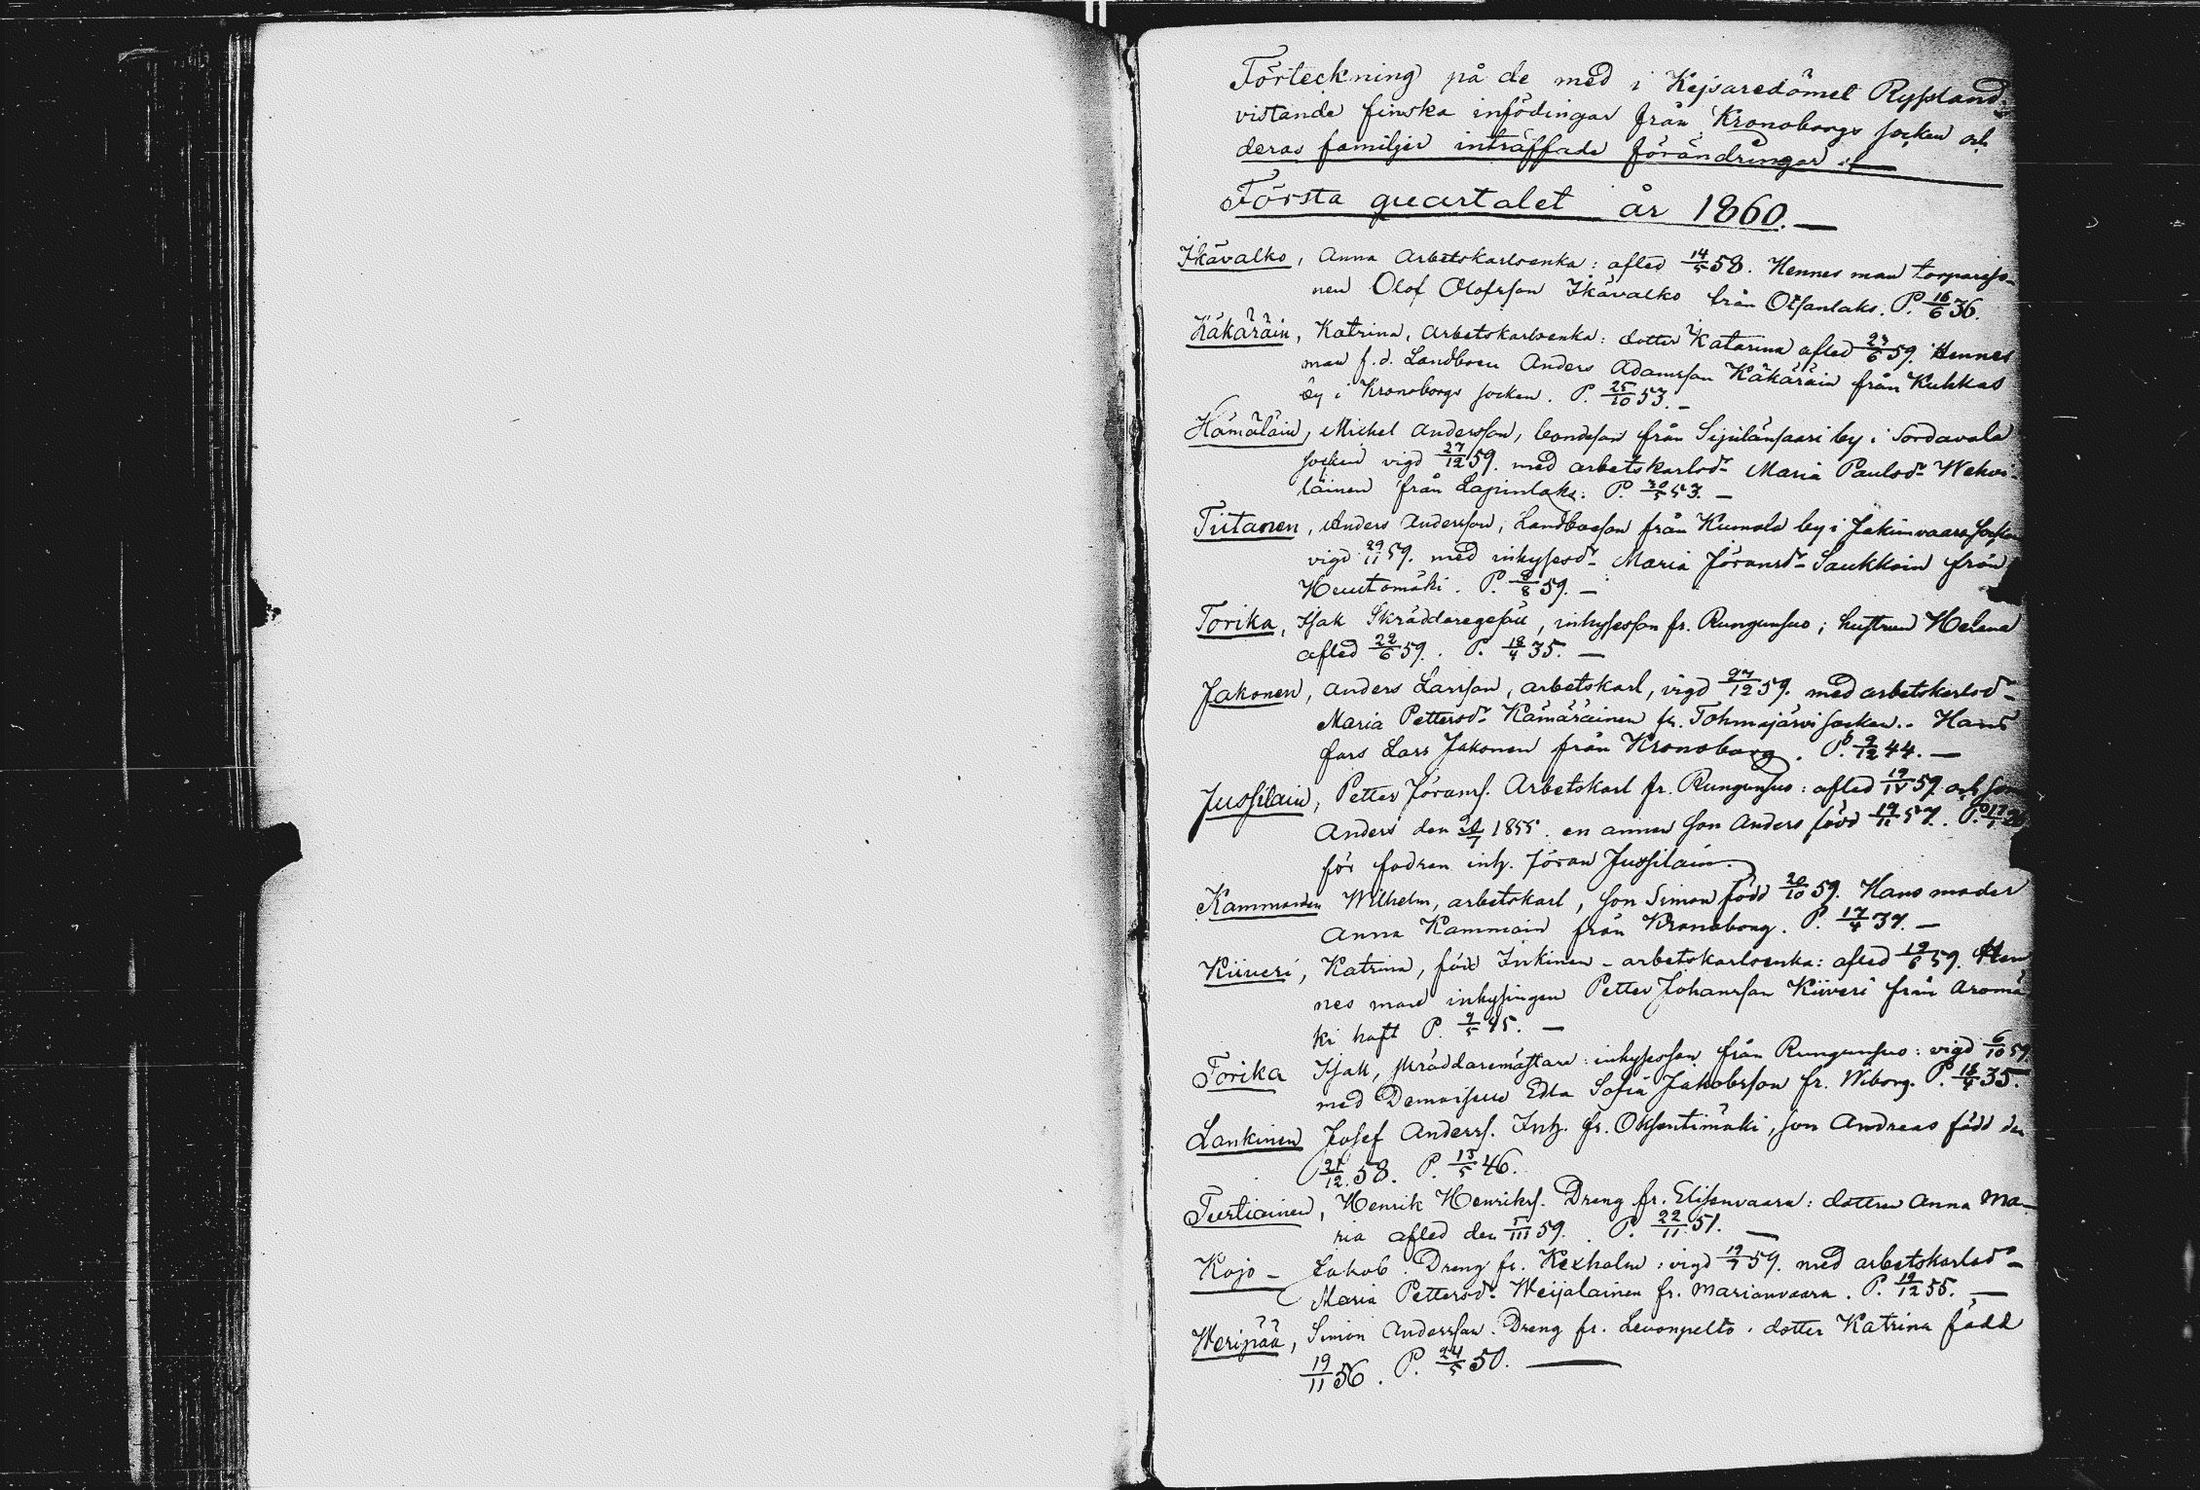 Förteckning på de med i Kejsaredömet Ryssland
vistande finska infödingar från Kronoborgs socken och
deras familjer inträffade förändringar.
Första quartalet år 1860.
Ikävalko, Anna Arbetskarlsenka: afled 14/5 58. Hennes man torpareso-
nen Olof Olofsson Ikävalko från Otsanlaks. P. 16/6 36.
Käkäräin, Katrina, Arbetskarlsenka: dotter Katarina afled 23/6 59. Hennes
man f.d. Landboen Anders Adamsson Käkäräin från Kuhkas
by i Kronoborgs socken. P. 25/10 53.
Hämäläin, Michel Andersson, bondeson från Sipilänsaari by i Sordavala
socken vigd 27/12 59. med arbetskarlsdr Maria Paulsdr Wehvi-
läinen från Lapinlaks: P. 30/5 53.
Tiitanen, Anders Andersson, Landboeson från Kumola by i Jakimvaara socken
vigd 29/11 59. med inhysesdr Maria Jöransdr Saukkoin från
Huutomäki. P. 8/8 59.
Torika, Isak Skräddaregesäll, inhysesson fr. Rungunsuo; hustrun Helena
afled 22/6 59. P. 18/4 35.
Jakonen, Anders Larsson, arbetskarl, vigd 27/12 59. med arbetskarlsdr
Maria Pettersdr Kämäräinen fr. Tohmajärvi socken. Hans
fars Lars Jakonen från Kronoborg. P. 9/12 44.
Jussilain, Petter Jöranss. Arbetskarl fr. Rungunsuo: afled 19/IV 59. och son
Anders den 1855. en annan son Anders född 19/11 57.
för fadren inh. Jöran Jussilain.
Kammonen Wilhelm, arbetskarl, son Simon född 20/10 59. Hans moder
Anna Kammoin från Kronoborg. P. 17/4 37.
Kiiveri, Katrina, född Inkinen - arbetskarlsenka: afled 19/6 59. Hen
nes man inhysingen Petter Johansson Kiiveri från Aromä
ki haft P. 9/5 45.
Torika Isak, skräddaremästare: inhysesson från Rungunsuo: vigd 6/10 59.
med Demoiselle Edla Sofia Jakobsson fr. Wiborg. P. 18/4 35.
Lankinen Josef Anderss. Inh. fr. Oksentimäki, son Andreas född den
21/12. 58. P. 13/5 46.
Tiirtiainen, Henrik Henrikss. Dreng fr. Elisenvaara: dottren Anna Ma-
ria afled den I/III 59. P. 22/11 51.
Kojo - Jakob. Dreng fr. Kexholm: vigd 19/7 59. med arbetskarlsdr
Maria Pettersdr Weijalainen fr. Marianvaara. P. 19/12 55.
Weripää, Simon Andersson. Dreng fr. Levonpelto. dotter Katrina född
19/11 56. P. 24/5 50.